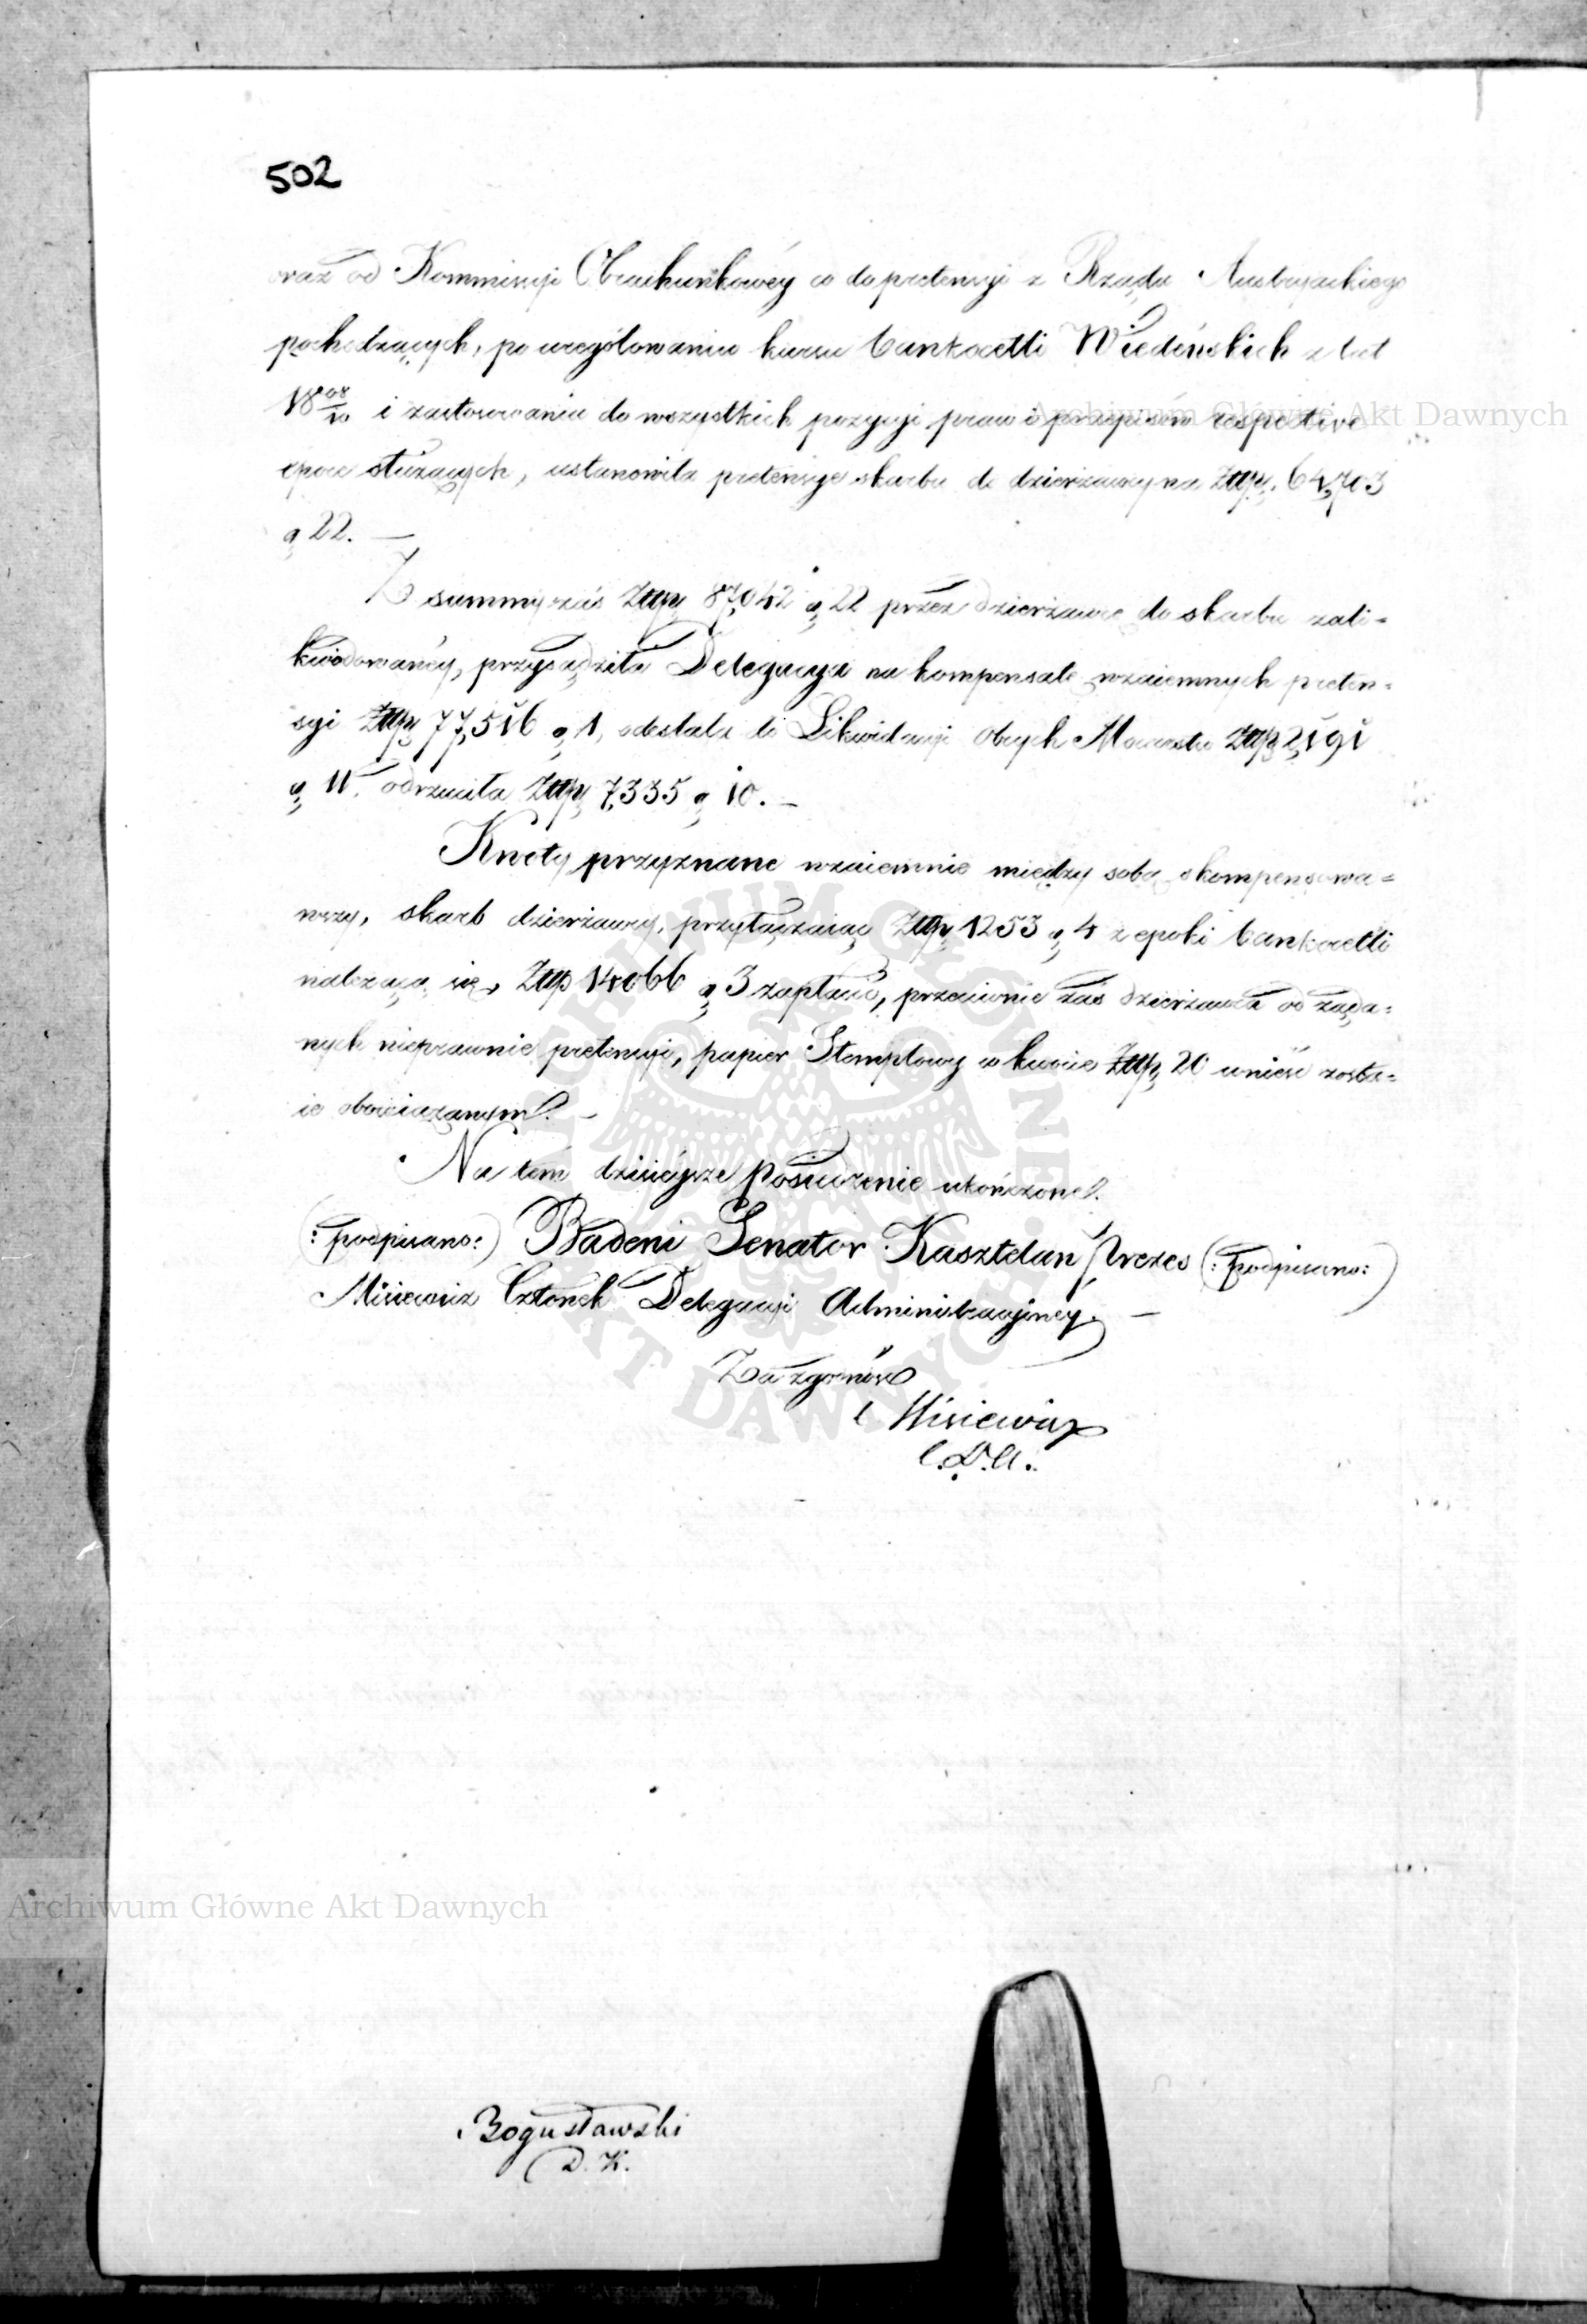 502
oraz od Kommissyi Obrachunkowéy co do pretensyi z Rządu Austryackiego
pochodzących, po uregulowaniu kursu bankocetli Wiedeńskich z lat
18 08/10 i zastosowaniu do wszystkich pozycyi praw i przepisów respective
epoce służących, ustanowiła pretensye skarbu do dzierżawcy na Złtp. 64,703
g 22. —
Z summy zaś Złtp 87,042 g 22 przez dzierżawcę do skarbu zali=
kwidowanéy, przysądziła Delegacya na kompensatę wzaiemnych preten=
syi Złtp 77,516 g 1, odesłała do Likwidacyi Obcych Mocarstw Złtp 2,191
g 11. odrzuciła Złtp 7,335 g 10. —
Kwoty przyznane wzaiemnie między sobą skompensowa=
wszy, skarb dzierżawcy, przyłączaiąc Złtp 1253 g 4 z epoki bankocetli
należącą się, Złtp 14066 g 3 zapłaci, przeciwnie zaś dzierżawca od żąda=
nych nieprawnie pretensyi, papier Stemplowy w kwocie Złtp 20 wnieść zosta=
ie obowiązanym. —
Na tém dzisieysze posiedzenie ukończone.
(: podpisano :) Badeni Senator Kasztelan Prezes (: podpisano :)
Misiewicz Członek Delegacyi Administracyjney. —
Za zgodność
Misiewicz
C.D.A.
Bogusławski
D. K.
Archiwum Główne Akt Dawnych
Archiwum Główne Akt Dawnych
ARCHIWUM GŁÓWNE AKT DAWNYCH